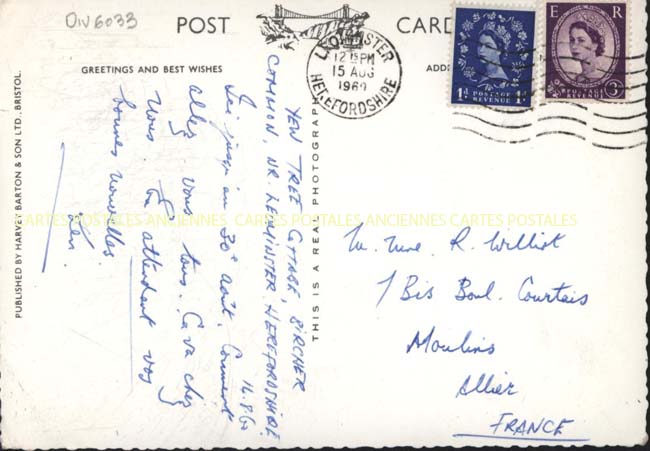 DIV6033
POST CARD
GREETINGS AND BEST WISHES
ADD
LEOMINSTER
12 PM
15 AUG
1960
HEREFORDSHIRE
1D POSTAGE REVENUE 1D
E R
POSTAGE REVENUE
3D
PUBLISHED BY HARVEY BARTON & SON LTD., BRISTOL.
THIS IS A REAL PHOTOGRAPH
YEW TREE COTTAGE, BIRCHER
COMMON, NR. LEOMINSTER. HEREFORDSHIRE.
14.8.60
Ici jusqu'au 30 août. Comment
allez vous tous. Ca va chez
vous. En attendant vos
bonnes nouvelles.
Ken.
M. Mme. R. Williot
1 Bis Boul. Courtais
Moulins
Allier
FRANCE
CARTES POSTALES ANCIENNES CARTES POSTALES ANCIENNES CARTES POSTALES